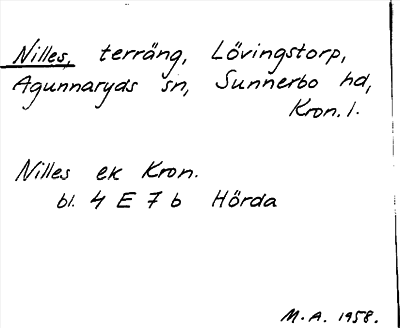 Nilles, terräng, Lövingstorp,
Agunnaryds sn, Sunnerbo hd,
Kron. l.
Nilles ek Kron.
bl. 4 E 7 b Hörda
M. A. 1958.